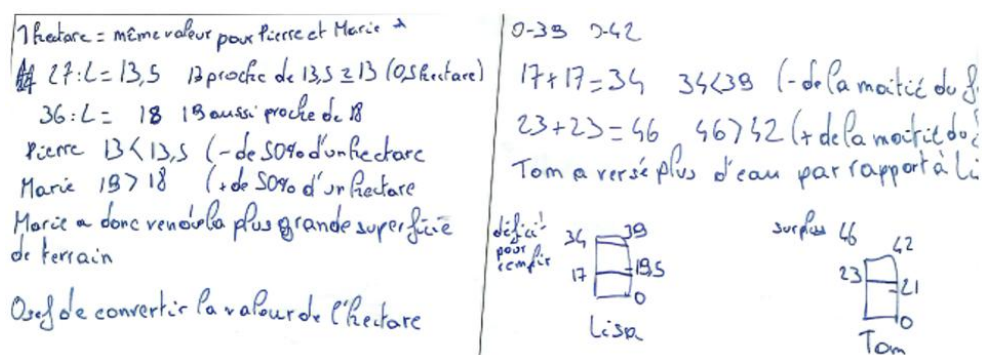 1 hectare = même valeur pour Pierre et Marie
27:2 = 13,5 13 proche de 13,5 ≥ 13 (0,5 hectare)
36:2 = 18 19 aussi proche de 18
Pierre 13 < 13,5 (- de 50% d'un hectare
Marie 19 > 18 (+ de 50% d'un hectare
Marie a donc vendu la plus grande superficie
de terrain
Osef de convertir la valeur de l'hectare
0-39 0-42
17+17=34 34<39 (- de la moitié du
23+23=46 46>42 (+ de la moitié du
Tom a versé plus d'eau par rapport à Li
déficit pour remplir
34 39
17 19,5
0
Lisa
surplus 46 42
23 21
0
Tom